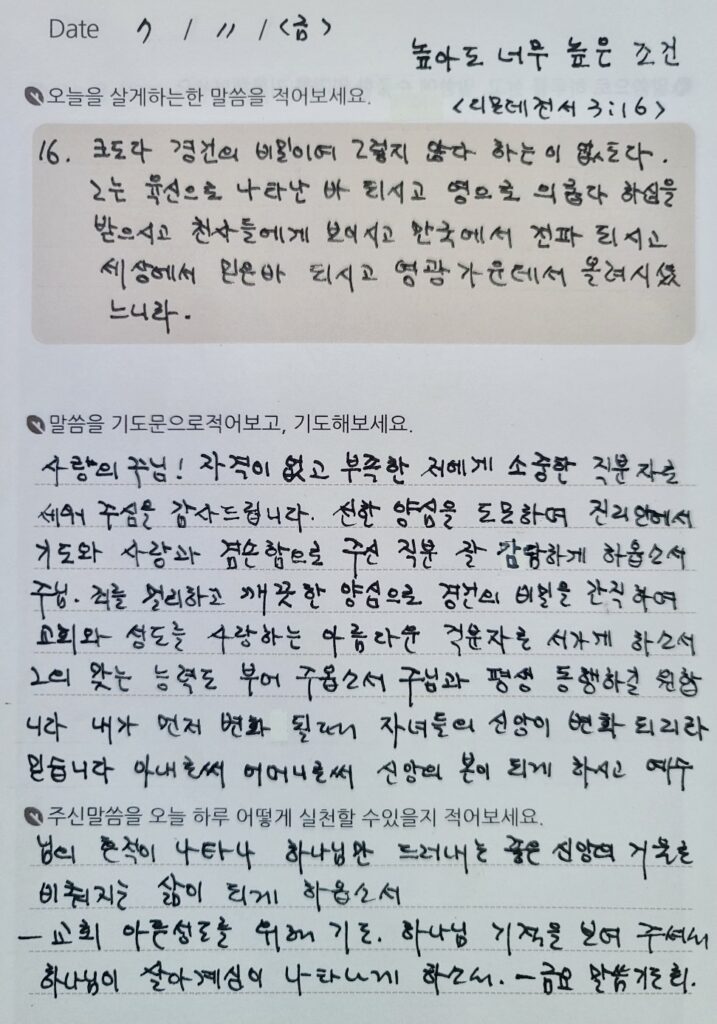 Date 7 / 11 / <금>
높아도 너무 높은 조건
오늘을 살게하는한 말씀을 적어보세요.
<디모데전서 3:16>
16. 크도다 경건의 비밀이여 그렇지 않다 하는 이 없도다.
그는 육신으로 나타난 바 되시고 영으로 의롭다 하심을
받으시고 천사들에게 보이시고 만국에서 전파 되시고
세상에서 믿은바 되시고 영광 가운데서 올려지셨
느니라.
말씀을 기도문으로적어보고, 기도해보세요.
사랑의 주님! 자격이 없고 부족한 저에게 소중한 직분자로
세워 주심을 감사드립니다. 선한 양심을 도모하여 진리안에서
기도와 사랑과 겸손함으로 주신 직분 잘 감당하게 하옵소서
주님. 죄를 멀리하고 깨끗한 양심으로 경건의 비밀을 간직하여
교회와 성도를 사랑하는 아름다운 직분자로 서가게 하소서
그의 맞는 능력도 부어 주옵소서 주님과 평생 동행하길 원합
니다 내가 먼저 변화 될때 자녀들의 신앙이 변화 되리라
믿습니다 아내로써 어머니로써 신앙의 본이 되게 하시고 예수
주신말씀을 오늘 하루 어떻게 실천할 수있을지 적어보세요.
님의 흔적이 나타나 하나님만 드러내는 좋은 신앙의 거울로
비춰지는 삶이 되게 하옵소서
- 교회 아픈성도를 위해 기도. 하나님 기적을 보여 주셔서
하나님이 살아계심이 나타나게 하소서. - 금요 말씀기도회.